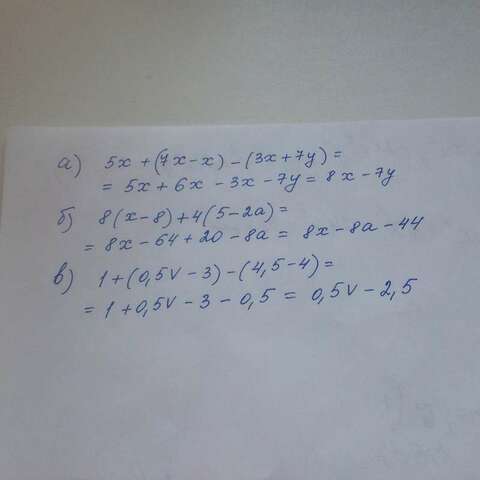 а) 5x + (7x - x) - (3x + 7y) =
= 5x + 6x - 3x - 7y = 8x - 7y
б) 8(x - 8) + 4(5 - 2a) =
= 8x - 64 + 20 - 8a = 8x - 8a - 44
в) 1 + (0,5v - 3) - (4,5 - 4) =
= 1 + 0,5v - 3 - 0,5 = 0,5v - 2,5